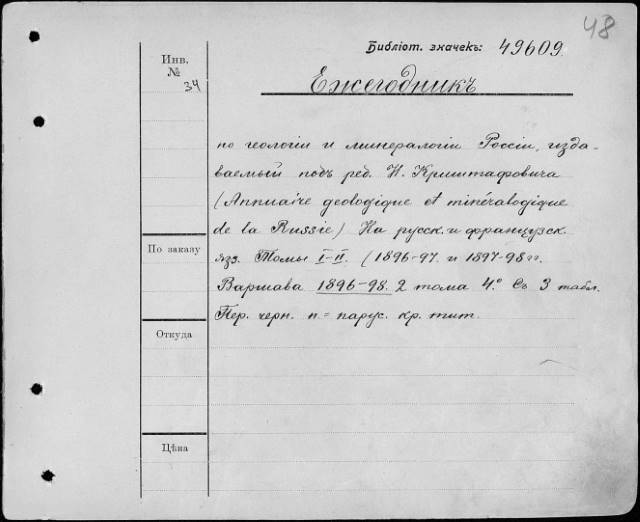 48
Библіот. значекъ: 49609.
Инв.
№
34
Ежегодникъ
по геологіи и минералогіи Россіи, изда-
ваемый подъ ред. Н. Криштафовича
(Annuaire geologique et minéralogique
de la Russie) На русск. и французск.
яз. Томы I-II. (1896-97. и 1897-98 гг.
Варшава 1896-98. 2 тома 4º. Съ 3 табл.
Пер. черн. п.=парус. кр. тит.
По заказу
Откуда
Цѣна